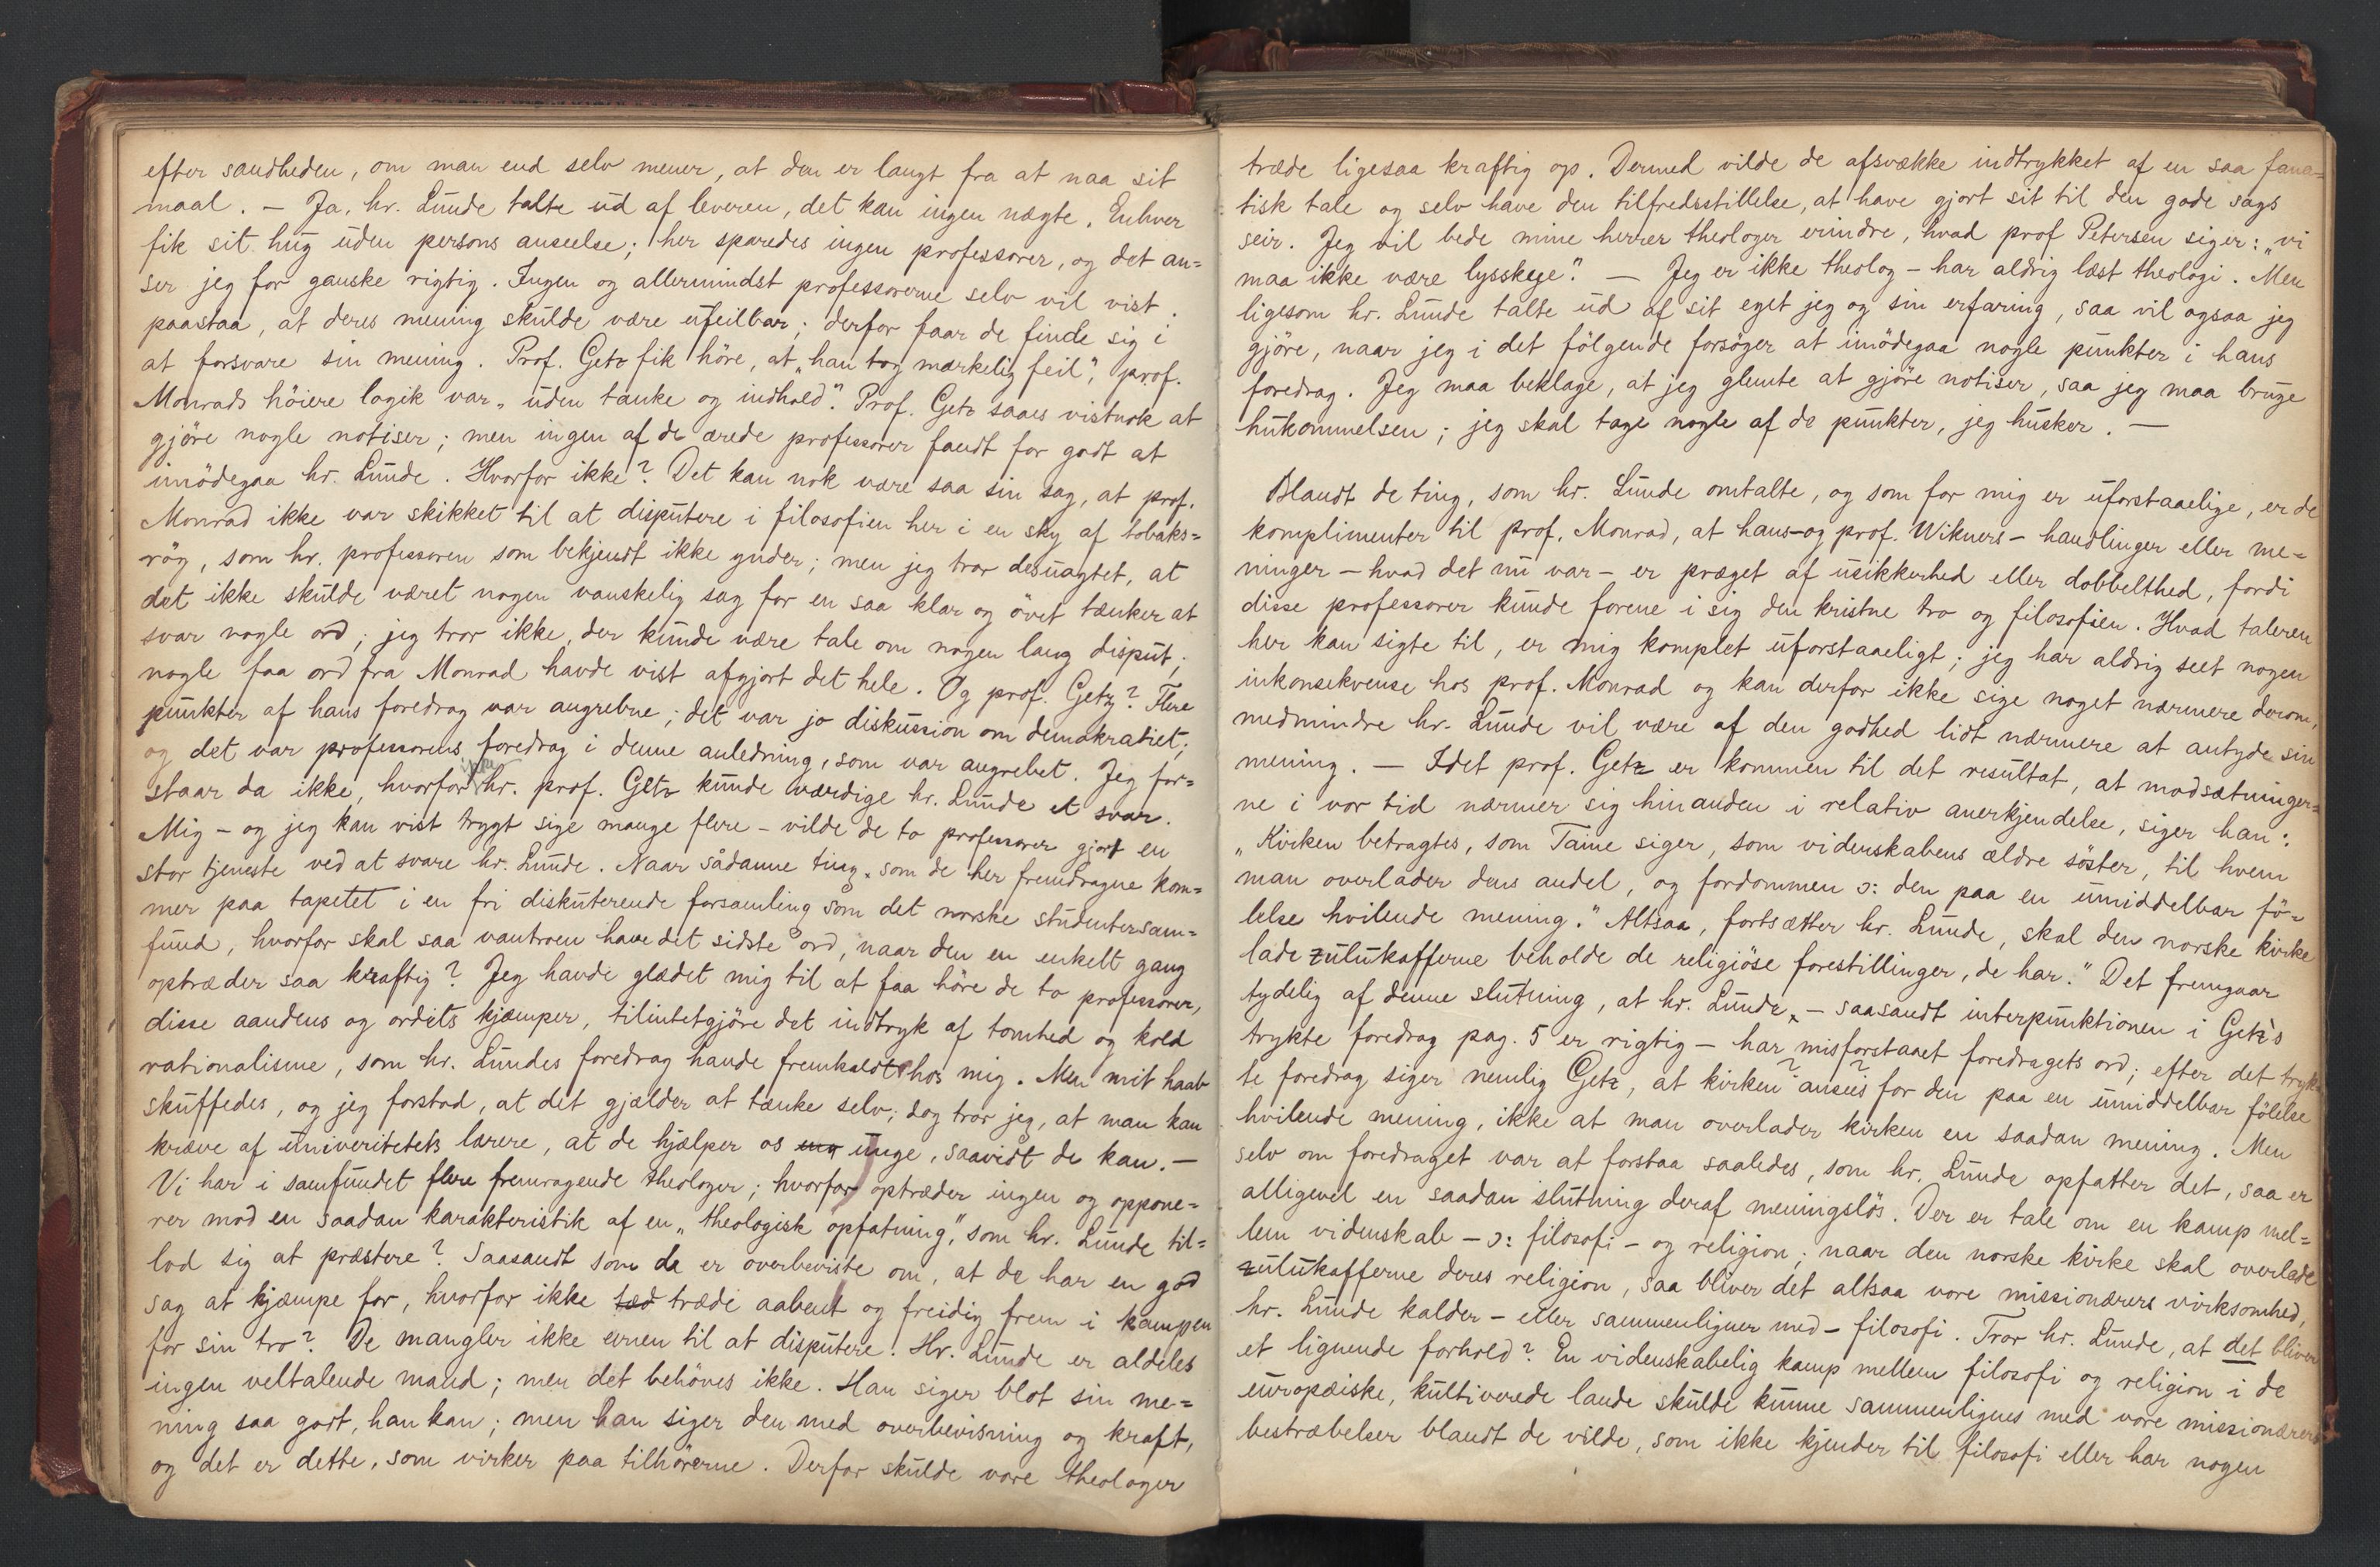 efter sandheden, om man end selv mener, at den er langt fra at naa sit
maal. — Ja, hr. Lunde talte ud af leveren, det kan ingen nægte. Enhver
fik sit hug uden persons anseelse; her sparedes ingen professorer, og det an=
ser jeg for ganske rigtig. Ingen og allermindst professorerne selv vil vist
paastaa, at deres mening skulde være ufeilbar; derfor faar de finde sig i
at forsvare sin mening. Prof. Getz fik höre, at „han tog mærkelig feil“, prof.
Monrads höiere logik var „uden tanke og indhold“. Prof. Getz saaes vistnok at
gjöre nogle notiser; men ingen af de ærede professorer fandt for godt at
imödegaa hr. Lunde. Hvorfor ikke? Det kan nok være saa sin sag, at prof.
Monrad ikke var skikket til at disputere i filosofien her i en sky af tobaks=
røg, som hr. professoren som bekjendt ikke ynder; men jeg tror desuagtet, at
det ikke skulde været nogen vanskelig sag for en saa klar og övet tænker at
svar nogle ord; jeg tror ikke, der kunde være tale om nogen lang disput;
nogle faa ord fra Monrad havde vist afgjort det hele. Og prof. Getz? Flere
punkter af hans foredrag var angrebne; det var jo diskussion om demokratiet;
og det var professorens foredrag i denne anledning, som var angrebet. Jeg for=
staar da ikke, hvorfor ikke hr. prof. Getz kunde værdige hr. Lunde et svar.
Mig – og jeg kan vist trygt sige mange flere – vilde de to professorer gjort en
stor tjeneste ved at svare hr. Lunde. Naar sådanne ting, som de her fremdragne kom=
mer paa tapetet i en fri diskuterende forsamling som det norske studentersam=
fund, hvorfor skal saa vantroen have det sidste ord, naar den en enkelt gang
optræder saa kraftig? Jeg havde glædet mig til at faa höre de to professorer,
disse aandens og ordets kjæmper, tilintetgjöre det indtryk af tomhed og kold
rationalisme, som hr. Lundes foredrag havde fremkaldt hos mig. Men mit haab
skuffedes, og jeg forstod, at det gjælder at tænke selv; dog tror jeg, at man kan
kræve af univeritetets lærere, at de hjælper os ung unge, saavidt de kan. —
Vi har i samfundet flere fremragende theologer; hvorfor optræder ingen og oppone=
rer mod en saadan karakteristik af en „theologisk opfatning“, som hr. Lunde til=
lod sig at præstere? Saasandt som de er overbeviste om, at de har en god
sag at kjæmpe for, hvorfor ikke tæd træde aabent og freidig frem i kampen
for sin tro? De mangler ikke evnen til at disputere. Hr. Lunde er aldeles
ingen veltalende mand; men det behöves ikke. Han siger blot sin me=
ning saa godt, han kan; men han siger den med overbevisning og kraft,
og det er dette, som virker paa tilhörerne. Derfor skulde vore theologer
træde ligesaa kraftig op. Dermed vilde de afsvække indtrykket af en saa fana=
tisk tale og selv have den tilfredsstillelse, at have gjort sit til den gode sags
seir. Jeg vil bede mine herrer theologer erindre, hvad prof Petersen siger: „vi
maa ikke være lysskye“. — Jeg er ikke theolog – har aldrig læst theologi. Men
ligesom hr. Lunde talte ud af sit eget jeg og sin erfaring, saa vil ogsaa jeg
gjöre, naar jeg i det fölgende forsöger at imödegaa nogle punkter i hans
foredrag. Jeg maa beklage, at jeg glemte at gjöre notiser, saa jeg maa bruge
hukommelsen; jeg skal tage nogle af de punkter, jeg husker. —
Blandt de ting, som hr. Lunde omtalte, og som for mig er uforstaaelige, er de
komplimenter til prof. Monrad, at hans – og prof. Wikners – handlinger eller me=
ninger – hvad det nu var – er præget af usikkerhed eller dobbelthed, fordi
disse professorer kunde forene i sig den kristne tro og filosofien. Hvad taleren
her kan sigte til, er mig komplet uforstaaeligt; jeg har aldrig seet nogen
inkonsekvense hos prof. Monrad og kan derfor ikke sige noget nærmere derom,
medmindre hr. Lunde vil være af den godhed lidt nærmere at antyde sin
mening. — Idet prof. Getz er kommen til det resultat, at modsætninger=
ne i vor tid nærmer sig hinanden i relativ anerkjendelse, siger han:
„Kirken betragtes, som Taine siger, som videnskabens ældre söster, til hvem
man overlader dens andel, og fordommen ɔ: den paa en umiddelbar fö=
lelse hvilende mening.“ Altsaa, fortsætter hr. Lunde, skal den norske kirke
lade zulukafferne beholde de religiöse forestillinger, de har.“ Det fremgaar
tydelig af denne slutning, at hr. Lunde, – saasandt interpunktionen i Getz's
trykte foredrag pag. 5 er rigtig – har misforstaaet foredragets ord; efter det tryk
te foredrag siger nemlig Getz, at kirken ? ansees ? for den paa en umiddelbar fölelse
hvilende mening, ikke at man overlader kirken en saadan mening. Men
selv om foredraget var at forstaa saaledes, som hr. Lunde opfatter det, saa er
alligevel en saadan slutning deraf meningslös. Der er tale om en kamp mel=
lem videnskab – ɔ: filosofi – og religion; naar den norske kirke skal overlade
zulukafferne deres religion, saa bliver det altsaa vore missionærers virksomhed,
hr. Lunde kalder – eller sammenligner med – filosofi. Tror hr. Lunde, at det bliver
et lignende forhold? En videnskabelig kamp mellem filosofi og religion i de
europæiske, kultiverede lande skulde kunne sammenlignes med vore missionærers
bestræbelser blandt de vilde, som ikke kjender til filosofi eller har nogen